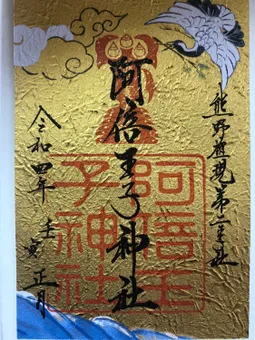 熊野権現第二王子社
阿倍王子神社
令和四年 壬寅 正月
阿倍王
子神社